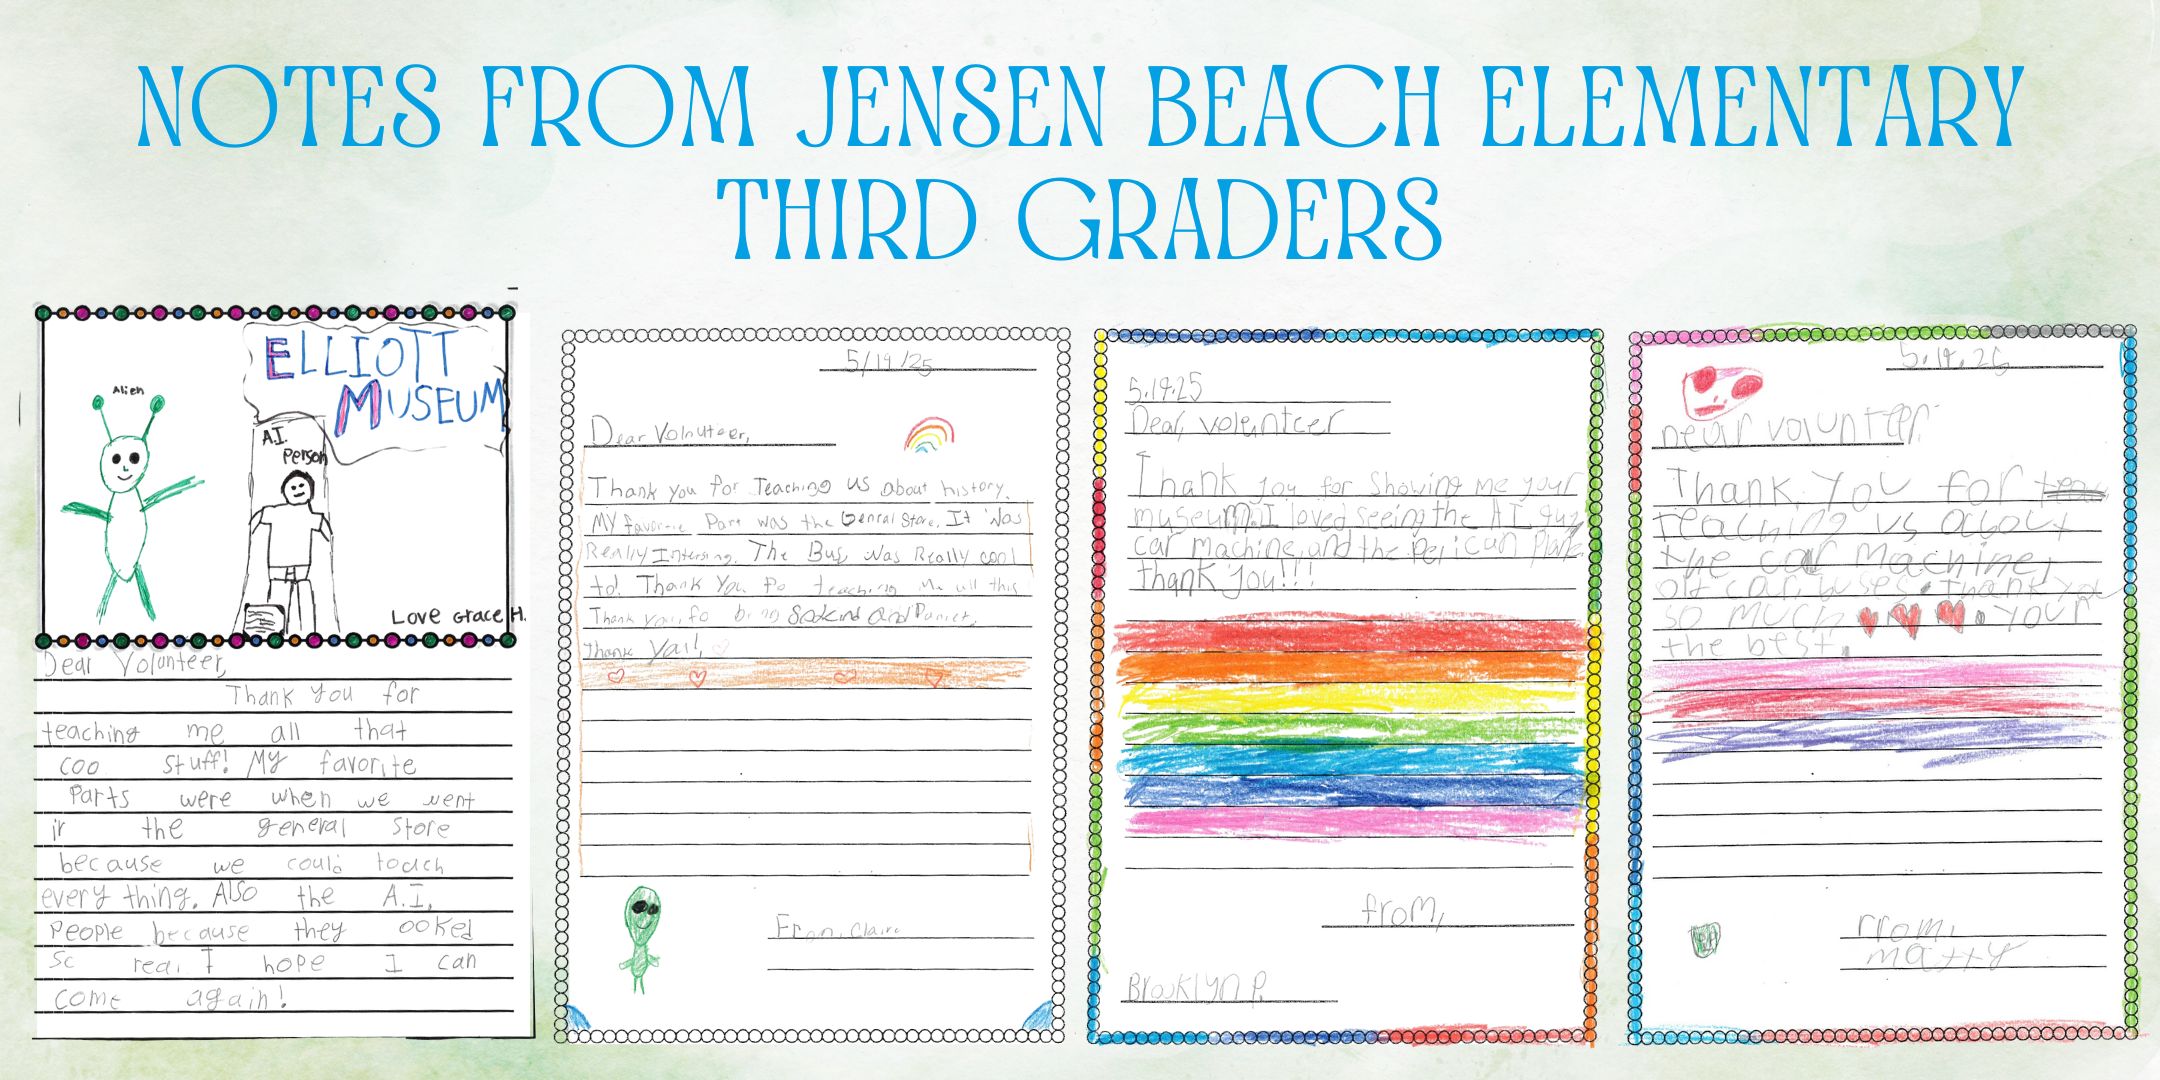 NOTES FROM JENSEN BEACH ELEMENTARY
THIRD GRADERS
Alien
ELLIOTT
MUSEUM
A.I.
Person
Love Grace H.
Dear Volunteer,
Thank you for
teaching me all that
coo stuff! My favorite
Parts were when we went
in the general store
because we could touch
every thing. Also the A.I.
People because they ooked
so real I hope I can
come again!
5/19/25
Dear Volnuteer,
Thank you for Teaching us about history.
My favorite Part was the Genral Store. It was
Really Intersing. The Bus was Really cool
to! Thank you fo teaching Me all this
Thank you fo being So kind and
Thank you!,
From, Claire
5.19.25
Dear, volenteer
Thank you for showing me your
museum. I loved seeing the A I guy,
car machine, and the pelican plane.
thank you!!!
from,
Brooklyn P.
5.19.25
Dear volunteer
Thank you for
teaching us about
the car machine,
old car, buses. Thank you
so much . your
the best.
From,
matty